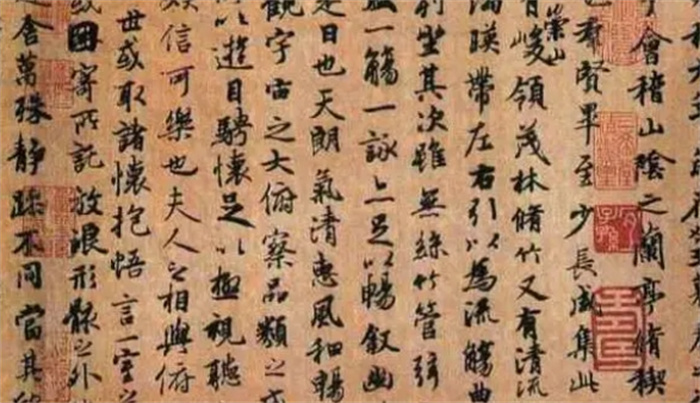 會稽山陰之蘭亭脩稧
也羣賢畢至少長咸集此
有崇山峻領茂林脩竹又有清流
湍暎帶左右引以為流觴曲
列坐其次雖無絲竹管弦
一觴一詠亦足以暢叙幽
是日也天朗氣清惠風和暢
觀宇宙之大俯察品類之盛
以遊目騁懷足以極視聽
娛信可樂也夫人之相與俯
世或取諸懷抱悟言一室之
或因寄所託放浪形骸之外
舍萬殊靜躁不同當其